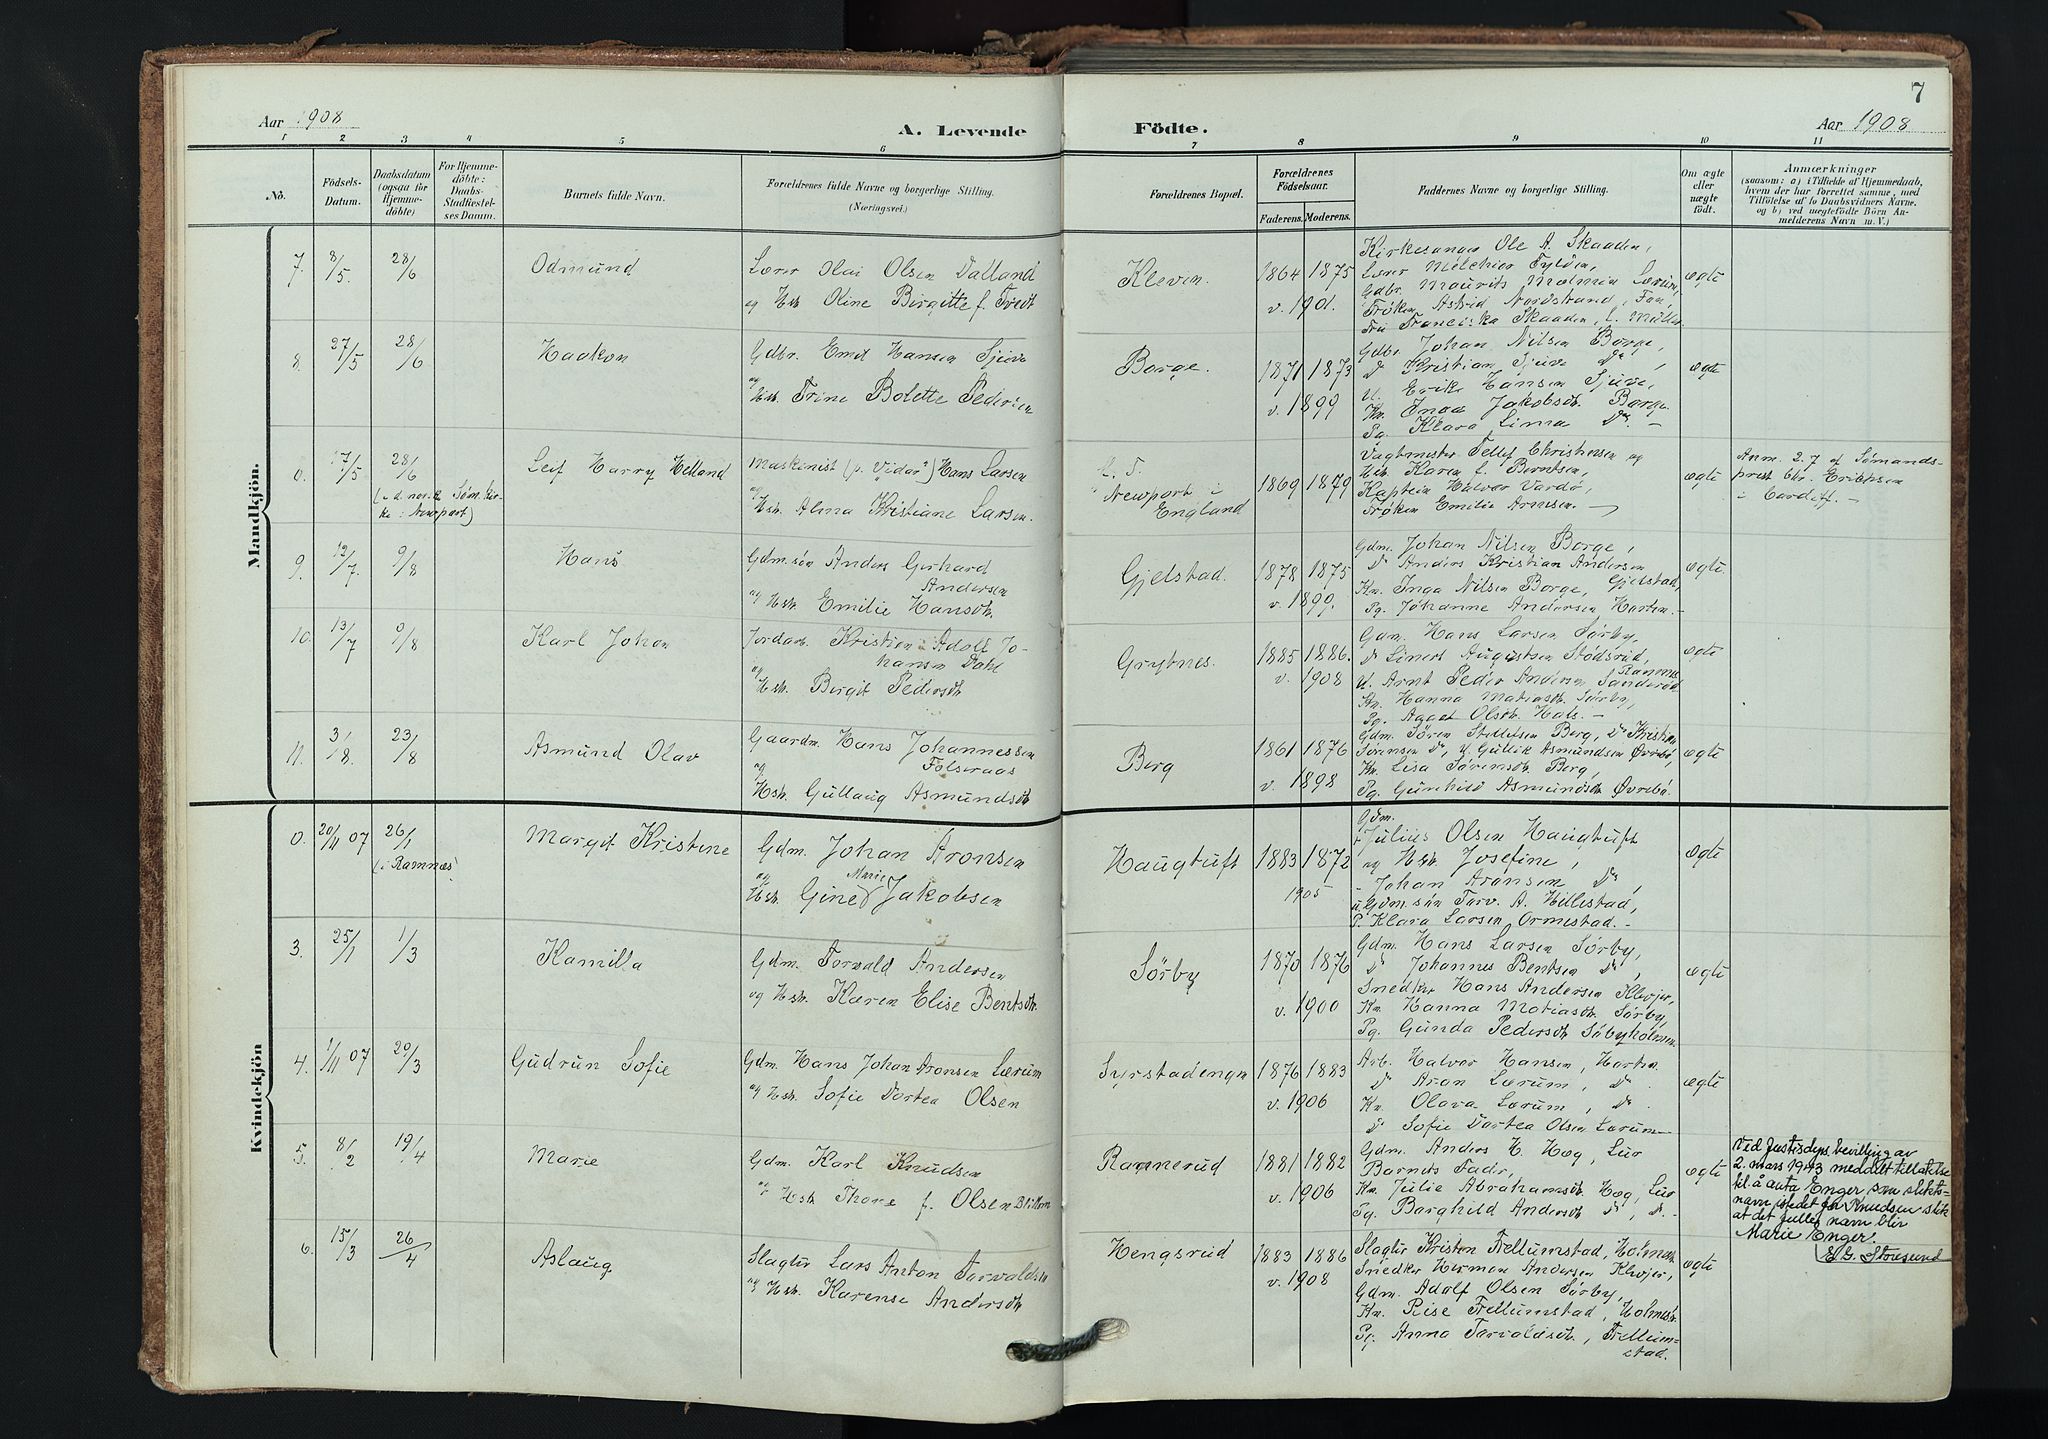 7
Aar 1908
A. Levende
Födte.
Aar 1908
1 2 3 4 5 6 7 8 9 10 11
No.
Födsels-
Datum.
Daabsdatum
(ogsaa for
Hjemme-
döbte)
For Hjemme-
döbte:
Daabs-
Stadfæstel-
ses Datum.
Barnets fulde Navn.
Forældrenes fulde Navne og borgerlige Stilling.
(Næringsvei.)
Forældrenes Bopæl.
Forældrenes
Födselsaar.
Faderens. Moderens.
Faddernes Navne og borgerlige Stilling.
Om ægte
eller
uægte
födt.
Anmærkninger
(saasom: a) i Tilfælde af Hjemmedaab,
hvem der har forrettet samme, med
Tilföielse af to Daabsvidners Navne.
og b) ved uægtefödte Börn An-
melderens Navn m. V.)
Mandkjön.
7. 8/5. 28/6 Odmund
Lærer Olai Olsen Dalland
og Hstr. Oline Birgitte f. Tredt
Kleven.
1864 1875
v. 1901.
Kirkesanger Ole A. Skaaden,
Lærer Melchior Tylden,
Gdbr. Maurits Molmen Lærum,
Frøken Astrid Nordstrand, Fon,
Fru Franciska Skaaden, f. Møller
ægte
8. 27/5 28/6 Haakon
Gdbr. Emil Hansen Sjuve
og Hstr. Trine Bolette Pedersen
Borge.
1871 1873
v. 1899
Gdbr. Johan Nilsen Borge,
Do Kristian Sjuve Do,
U. Erike Hansen Sjuve,
Kn. Inga Jakobsdtr. Borge
Pg. Klara Lima Do. -
ægte
0. 17/5 28/6
(i d. norske Sømkir-
ke i Newport)
Leif Harry Helland
Maskinist (p. "Vidar") Hans Larsen
og Hstr. Alma Kristiane Larsen.
Newport i
England
1869 1879
Vagtmester Tellef Christensen og
Hstr. Karen f. Berntsen,
Kaptein Halvor Vardø,
Frøken Emilie Arnesen.
ægte
Anm. 2.7 af Sømands-
prest Chr. Eriksen
i Cardiff. -
9. 12/7. 9/8 Hans
Gdm.søn Anders Gerhard
Andersen
og Hstr. Emilie Hansdtr.
Gjelstad.
1878 1875
v. 1899.
Gdm. Johan Nilsen Borge,
Do Anders Kristian Andersen
Gjelstad,
Kn. Inga Nilsen Borge,
Pg. Johanne Andersen Horten. -
ægte.
10. 13/7 9/8 Karl Johan
Jordarb. Kristian Adolf Jo-
hansen Dahl
og Hstr. Bergit Pedersdtr
Grytnes.
1885 1886.
v. 1908
Gdm. Hans Larsen Sørby,
Do Linert Augustsen Stødsrød,
U. Arnt Peder Andersen Sanderød
Ramnes
Kn. Hanna Matiasdtr. Sørby,
Pg. Aagot Olsdtr. Hals. -
ægte
11. 3/8. 23/8 Asmund Olav
Gaardm. Hans Johannessen
Folseraas
og
Hstr. Gullaug Asmundsdtr
Berg
1861 1876
v. 1898
Gdm. Søren Stellefsen Berg, Do Kristian
Sørensen Do, U. Gullik Asmundsen Øvrebø,
Kn. Lisa Sørensdtr. Berg,
Pg. Gunhild Asmundsdtr Øvrebø.
ægte
Kvindekjön
0. 20/11 07 26/1
(i Ramnes)
Margit Kristine
Gdm. Johan Aronsen
og Marie
Hstr. Gine Jakobsen
Haugtuft
1883 1872
1905
Gdm.
Julius Olsen Haugtuft
og Hstr. Josefine,
- Johan Aronsen Do,
u. Gdm.søn Torv. A. Hillestad,
P. Klara Larsen Ormestad. -
ægte
3. 25/1 1/3 Kamilla
Gdm. Torvald Andersen
og Hstr. Karen Elise Bentsdtr.
Sørby
1870 1876
v. 1900
Gdm. Hans Larsen Sørby,
Do Johannes Bentsen Do,
Snedker Hans Andersen Klopjer,
Kn. Hanna Matiasdtr Sørby,
Pg. Gunda Pedersdtr Søbyholmen.
ægte
4. 1/11 07 20/3 Gudrun Sofie
Gdm. Hans Johan Aronsen Lærum
og Hstr. Sofie Dortea Olsen
Syrstadengen
1876 1883
v. 1906
Arb. Halvor Hansen, Horten
Do Aron Lærum, Do.
Kn. Olava Lærum, Do.
Do Sofie Dortea Olsen Lærum
ægte
5. 8/2 19/4 Marie
Gdm. Karl Knudsen
og Hstr. Thora f. Olsen
Rannerud
1881 1882
v. 1906
Gdm. Anders H. Høg, Lur
Barnets Fader,
Kn. Julie Abrahamsdtr. Høg, Lur
Pg. Borghild Andersdtr Do, Do. -
ægte
Ved Justisdeps. bevilling av
2. mars 1943 meddelt tillatelse
til å anta Enger som slekts-
navn istedet for Knudsen slik
at det fulle navn blir
Marie Enger.
E. G. Storesund
6. 15/3 26/4 Aslaug
Slagter Lars Anton Torvaldsen
og Hstr. Karense Andersdtr
Hengsrud
1883 1886
v. 1908
Slagter Kristen Frellumstad, Holmestr.
Snedker Herman Andersen Klopjer,
Gdm. Adolf Olsen Sørby,
Kn. Rise Frellumstad, Holmestr.
Pg. Anna Torvaldsdtr., Frellum-
stad.
ægte